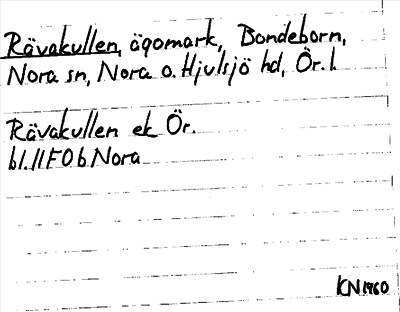 Rävakullen, ägomark, Bondeborn,
Nora sn, Nora o. Hjulsjö hd, Ör. l.
Rävakullen ek Ör.
bl. 11F0b Nora
KN 1960